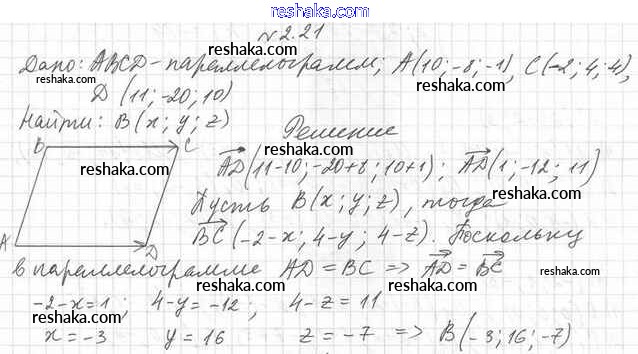 reshaka.com
№2.21
Дано: ABCD - параллелограмм; A(10;-8;-1), C(-2;4;4),
reshaka.com
reshaka.com
D (11;-20;10)
reshaka.com
reshaka.com
Найти: B(x;y;z)
Решение
B C
reshaka.com
AD(11-10;-20+8;10+1); AD(1;-12;11)
reshaka.com
Пусть B(x;y;z), тогда
reshaka.com
BC(-2-x; 4-y; 4-z). Поскольку
A D
reshaka.com
в параллелограмме AD = BC => AD = BC
reshaka.com
-2-x=1; 4-y=-12; 4-z=11
reshaka.com
reshaka.com
x=-3 y=16 z=-7 => B(-3;16;-7)
reshaka.com
reshaka.com